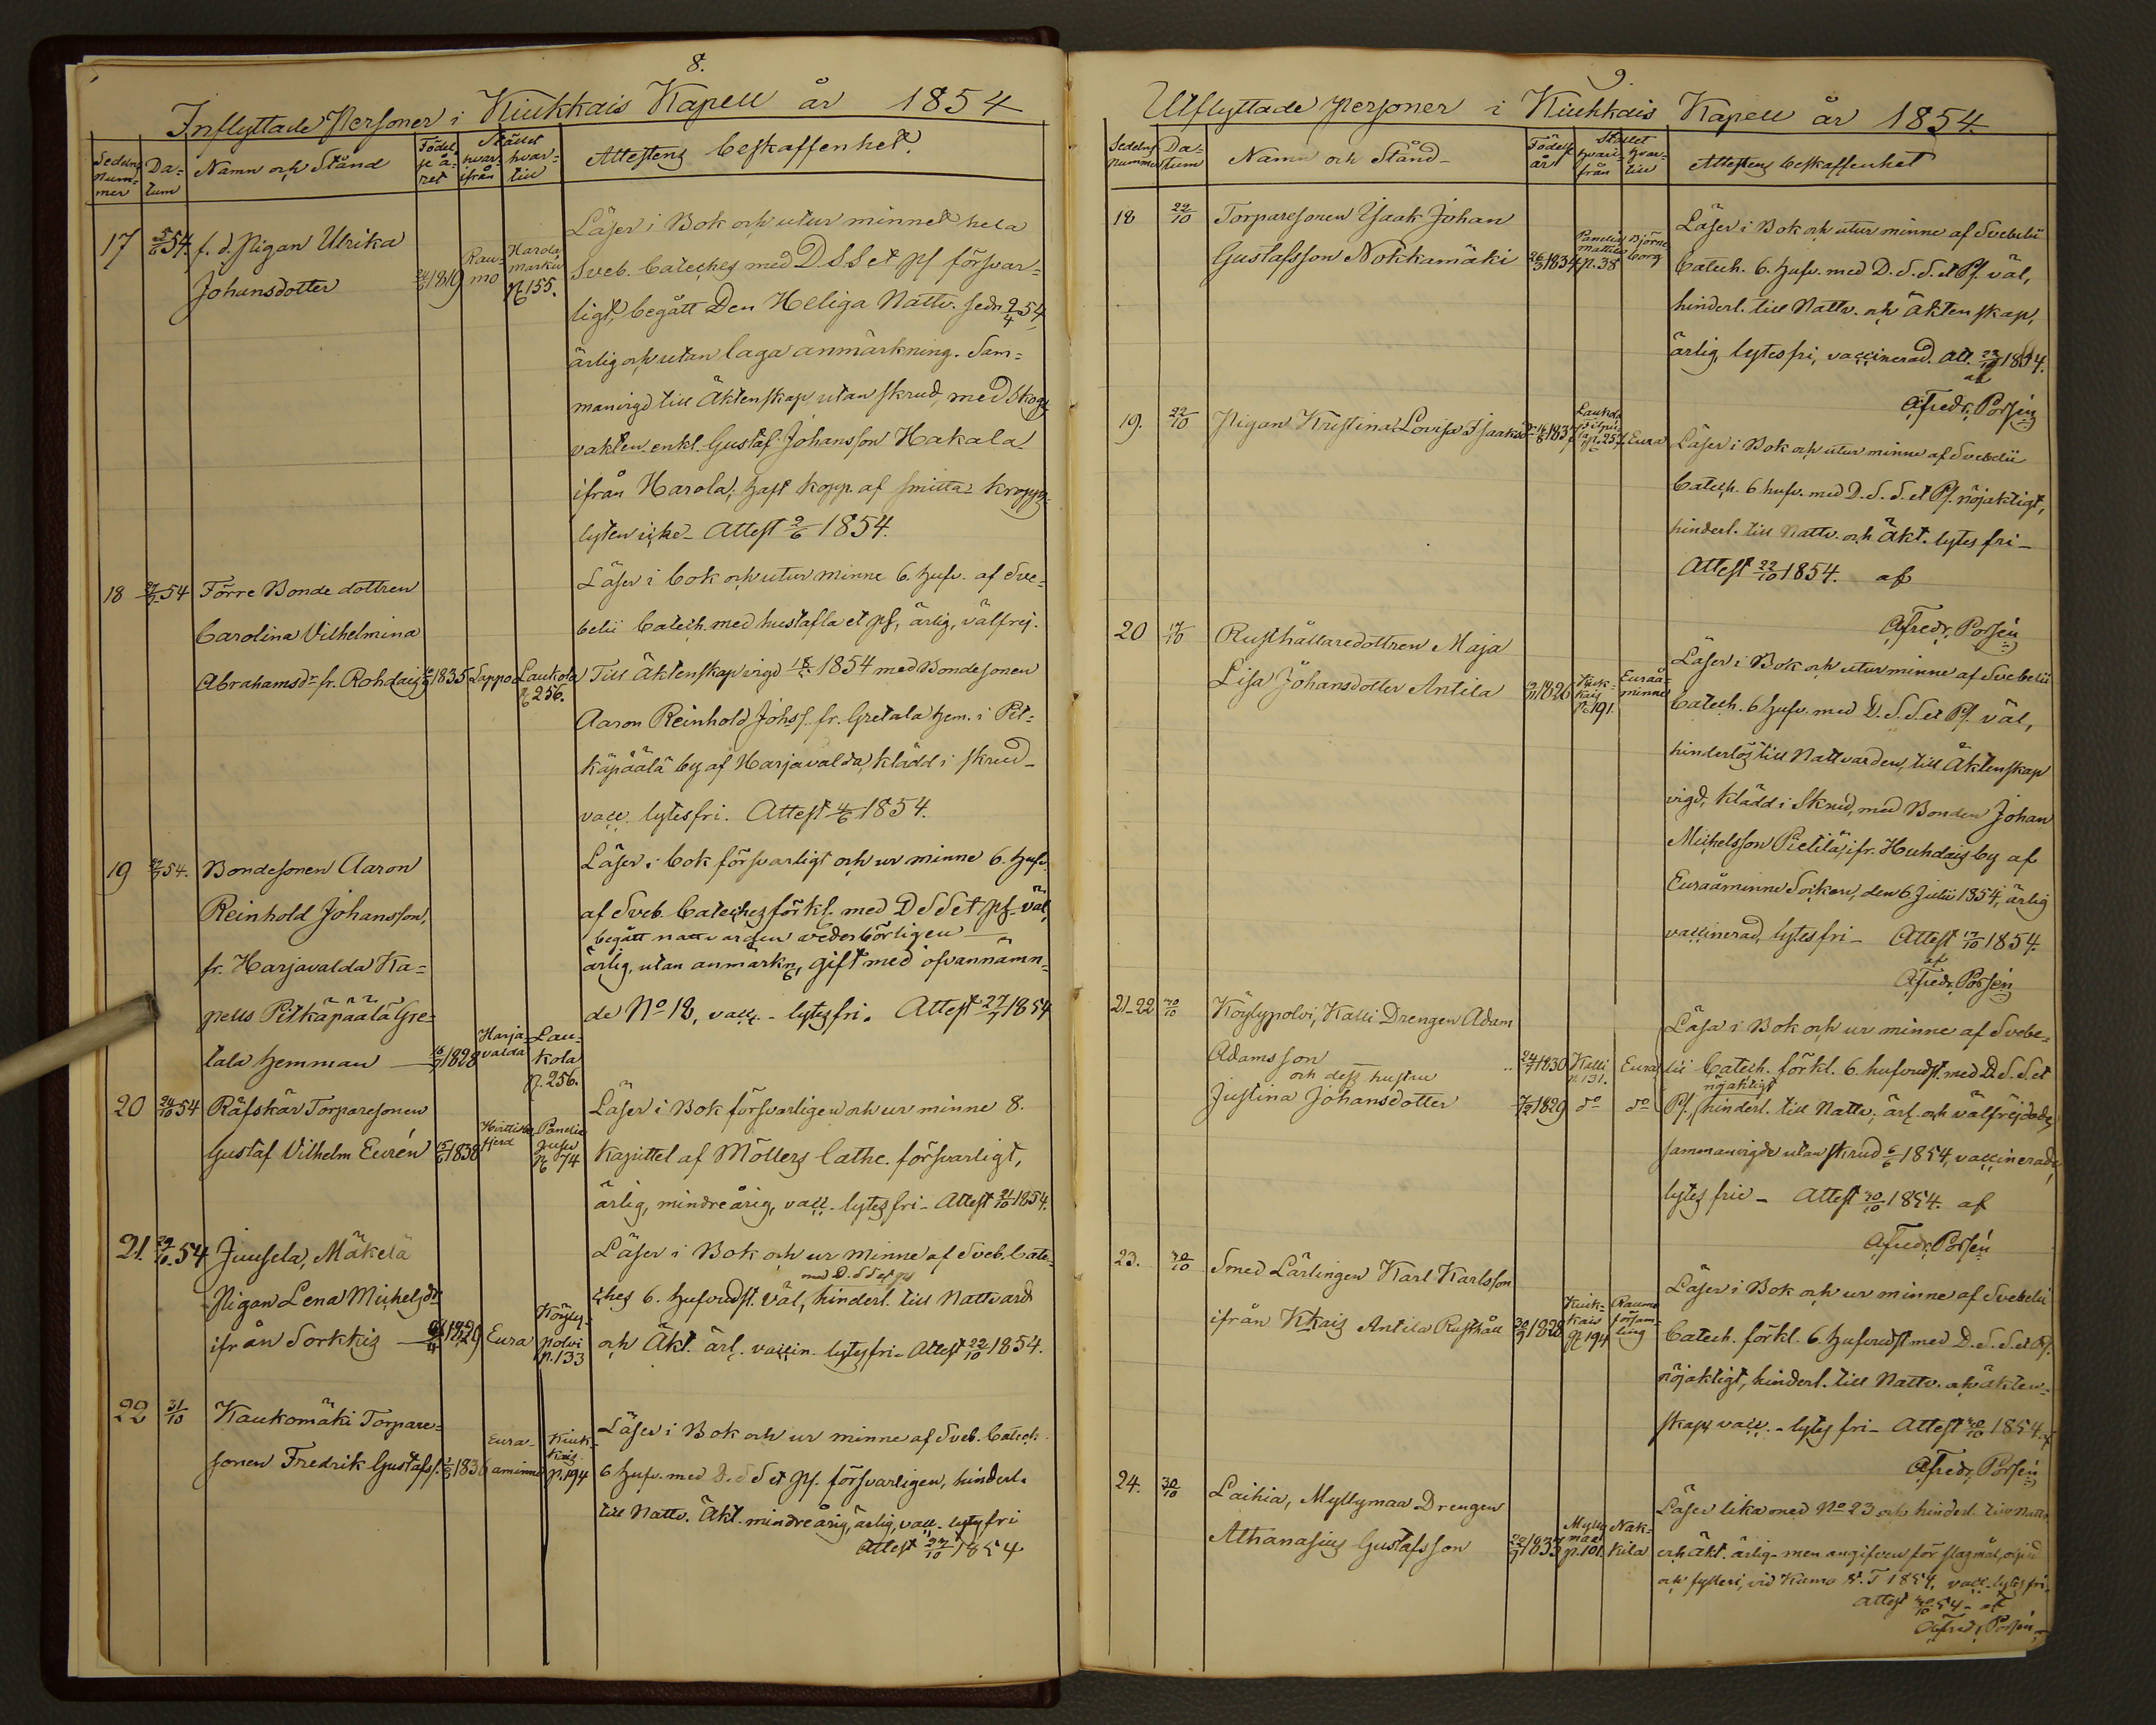 8.
Inflyttade Personer i Kiukkais Kapell år 1854
Sedelns Num=mer
Da=tum
Namn och Stånd
Födel se å=ret
Stället
hvar ifrån
hvar=till
Attestens beskaffenhet.
17 5/6 54. f. d. Pigan Ulrika
Johansdotter 1819 Rau=mo Harola Marku p. 155.
Läser i Bok och utur minnet hela
Sveb. Cateches med D S S et ps försvar=
ligt, begått Den Heliga Nattv. sedn 2/4 54,
ärlig och utan laga anmärkning. Sam=
manvigd till Äktenskap utan skrud, med Skogs
vakten enkl. Gustaf Johansson Hakala
ifrån Harola; haft kopp. af smitta
lyten icke. Attest 2/6 1854.
18 54 Förre Bonde dottren
Carolina Vilhelmina
Abrahamsdr fr. Rohdais 1835 Lappo Laukola p. 256.
Läser i bok och utur minne 6. hufv. af Sve=
belii Catech. med hustafla et ps, ärlig, välfrej.
Till äktenskap vigd 1854 med Bondesonen
Aaron Reinhold Johss. fr. Gretala hem. i Pit=
käpäälä by af Harjavalda, klädd i skrud
vacc. lytesfri. Attest 4/6 1854.
19 54. Bondesonen Aaron
Reinhold Johansson,
fr. Harjavalda Ka=
pells Pitkäpäälä Gre=
tala hemman 1828 Harja=valda Lau=kola p. 256.
Läser i bok försvarligt och ur minne 6. hufv.
af Sveb. Cateches förkl. med D S S et ps. väl,
begått nattvarden vederbörligen
ärlig, utan anmärkn, gift med ofvannämn=
de No 18, vacc. - lytesfri. Attest 27/7 1854
20 24/10 54 Räfskär Torparesonen
Gustaf Vilhelm Eurén 15/6 1838 Hvittisbofjerd Panelia p. 74
Läser i Bok försvarligen och ur minne 8.
Kapittel af Möllers Cathe. försvarligt,
ärlig, mindreårig, vacc. lytesfri - Attest 21/10 1854.
21 29/10 54 Juusela, Mäkelä
Pigan Lena Michelsdr
ifrån Sorkkis 1829 Eura Köyly=polvi p. 133
Läser i Bok och ur minne af Sveb. Cate=
med D. S S et ps
ches 6. hufvudst. väl, hinderl. till Nattvard
och Äkt. ärl. vaccin. lytesfri - Attest 22/10 1854.
22 31/10 Kaukomäki Torpare=
sonen Fredrik Gustafss. 1836 Eura=aminne Kiuk=kais p. 194
Läser i Bok och ur minne af Sveb. Catech.
6 hufv. med D. S S et ps. försvarligen, hinderl.
till Nattv. Äkt. mindreårig, ärlig, vacc. lytesfri
Attest 27/10 1854
9.
Utflyttade Personer i Kiukkais Kapell år 1854.
Sedelns Nummer
Da=tum
Namn och Stånd
Födelse år
Stället
hvari=från
hvar=till
Attestens beskaffenhet
18 22/10 Torparesonen Isaak Johan
Gustafsson Nokkamäki 26/3 1834 Panelia Mattila p. 38 Björne borg
Läser i Bok och utur minne af Svebelii
Catech. 6. hufv. med D. S. S. et Ps. väl,
hinderl. till Nattv. och äktenskap,
ärlig, lytesfri, vaccinerad. Att. 22/10 1854.
af
A Fredr. Porsén
19. 22/10 Pigan Kristina Lovisa Isaaksdr 1837 Laukola p. 257 Eura
Läser i Bok och utur minne af Svebelii
Catech. 6 hufv. med D. S. S. et Ps. nöjaktigt,
hinderl. till Nattv. och Äkt. lytesfri -
Attest 22/10 1854. af
A Fredr. Porsén
20 17/10 Rusthållaredottren Maja
Lisa Johansdotter Antila 1826 Kiuk=kais p. 191. Euraå=minne
Läser i Bok och utur minne af Svebelii
Catech. 6 hufv. med D. S. S. et Ps. väl,
hinderlös till Nattvarden, till Äktenskap
vigd, klädd i Skrud, med Bonden Johan
Michelsson Pietilä, ifr. Huhdais by af
Euraåminne Socken, den 6 Julii 1854, ärlig
vaccinerad, lytesfri - Attest 17/10 1854.
af
A Fredr. Porsén
21-22 30/10 Köylypolvi, Kalli Drengen Adam
Adamsson 24/7 1830 Kalli p. 131. Eura
och dess hustru
Justina Johansdotter 1829 do do
Läsa i Bok och ur minne af Svebe=
lii Catech. förkl. 6. hufvudst. med D. S. S. et
nöjaktigt
Ps., hinderl. till Nattv., ärl. och välfrejdade,
sammanvigde utan skrud 6/6 1854, vaccinerade,
lytes frie - Attest 30/10 1854. af
A Fredr. Porsén
23. 30/10 Smed Lärlingen Karl Karlsson
ifrån Kkais Antila Rusthåll 1828 Kiuk=kais p. 194 Raumo försam=ling
Läser i Bok och ur minne af Svebelii
Catech. förkl. 6. hufvudst med D. S. S. et Ps.
nöjaktigt, hinderl. till Nattv. och äkten=
skap, vacc. - lytes fri - Attest 30/10 1854 af
A Fredr. Porsén
24. 30/10 Laihia, Myllymaa Drengen
Athanasius Gustafsson 1833 Mylly maa p. 101. Nak=kila
Läser lika med No 23 och hinderl. till Nattv.
och äkt. ärlig - men angifven för slagsmål,
och fylleri, vid Kumo 1854, vacc. lytesfri.
Attest 30/10 54 - af
A Fredr. Porsén